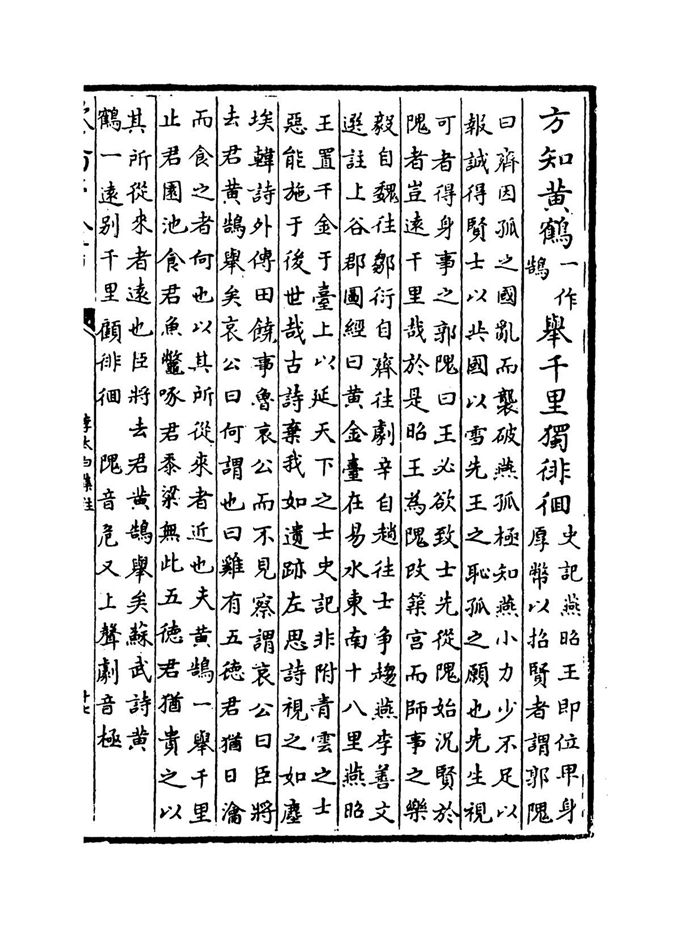 方知黄鶴一作鵠舉千里獨徘徊史記燕昭王即位卑身
厚幣以招賢者謂郭隗
曰齊因孤之國亂而襲破燕孤極知燕小力少不足以
報誠得賢士以共國以雪先王之恥孤之願也先生視
可者得身事之郭隗曰王必欲致士先從隗始况賢於
隗者豈遠千里哉於是昭王為隗改築宫而師事之樂
毅自魏往鄒衍自齊往劇辛自趙往士争趨燕李善文
選註上谷郡圖經曰黄金臺在易水東南十八里燕昭
王置千金于臺上以延天下之士史記非附青雲之士
惡能施于後世哉古詩棄我如遺跡左思詩視之如塵
埃韓詩外傳田饒事魯哀公而不見察謂哀公曰臣將
去君黄鵠舉矣哀公曰何謂也曰雞有五德君猶日瀹
而食之者何也以其所從來者近也夫黄鵠一舉千里
止君園池食君魚鼈啄君黍粱無此五德君猶貴之以
其所從來者遠也臣將去君黄鵠舉矣蘇武詩黄
鶴一遠别千里顧徘徊 隗音危又上聲劇音極
李太白集注
十七